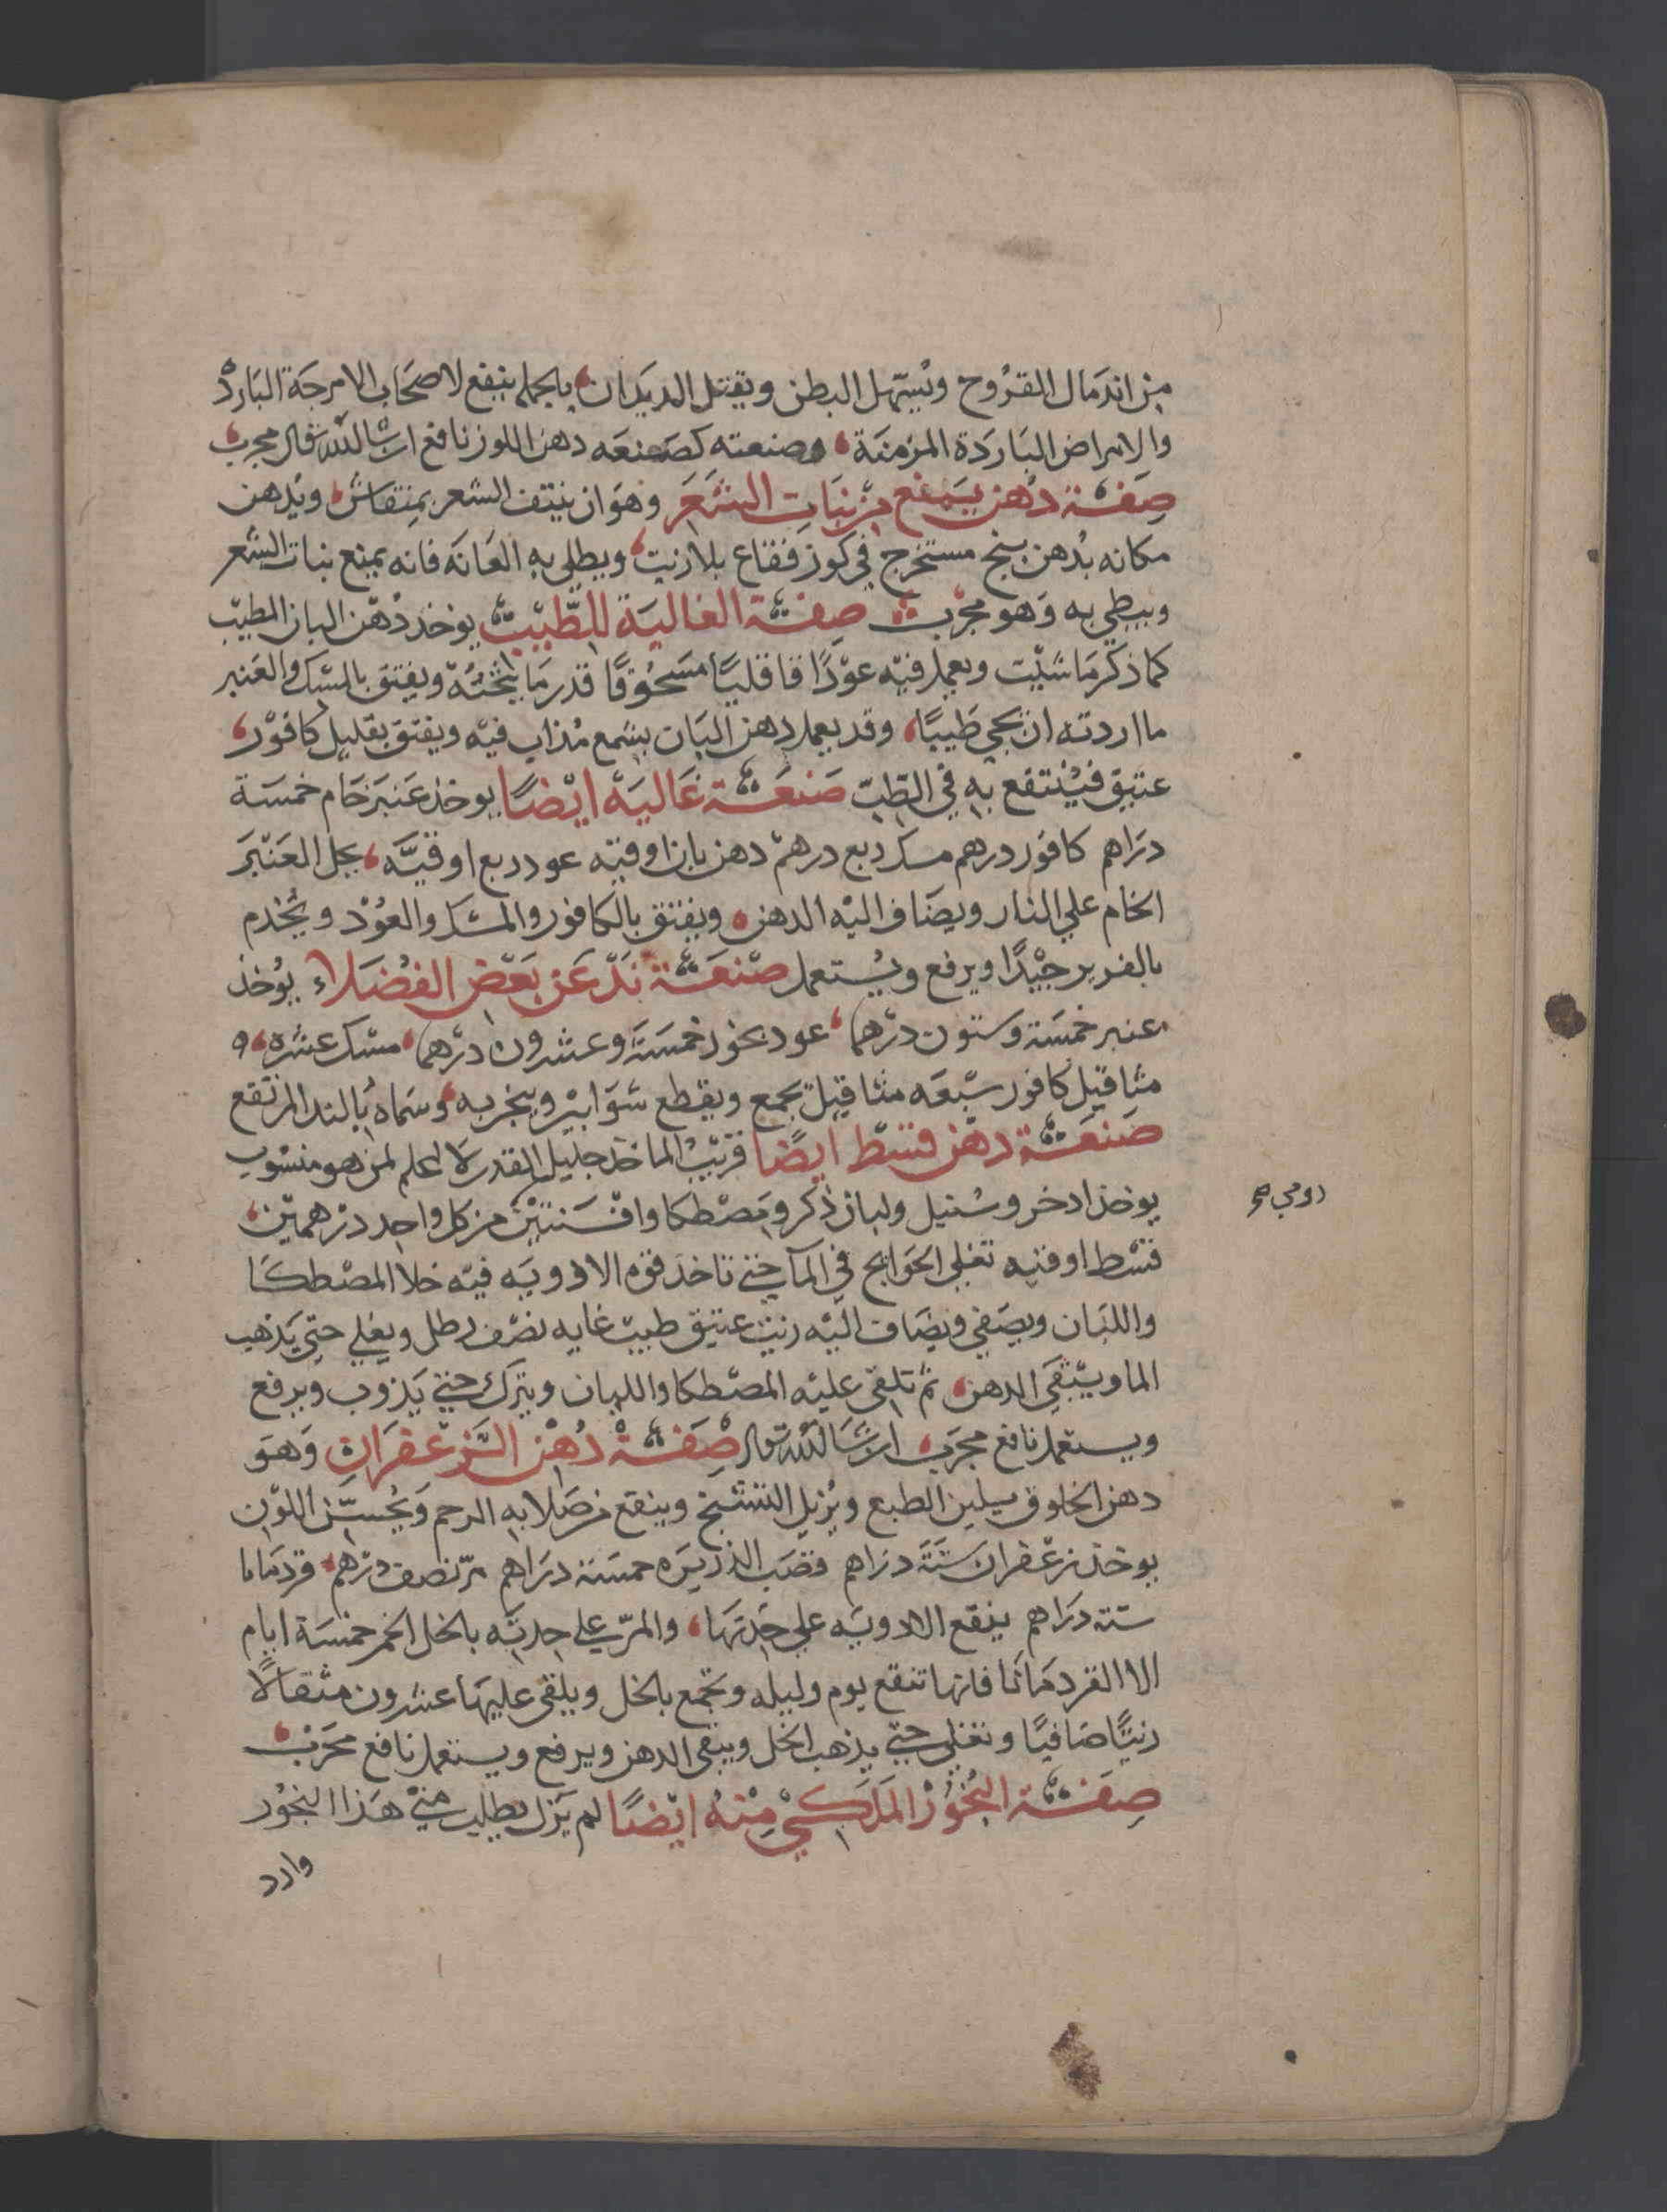 من اندمال القروح ويسهل البطن ويقتل الديدان بالجمله ينفع لاصحاب الامزجة البارد
والامراض الباردة المزمنة وصنعته كصنعه دهن اللوز نافع ان شا الله تعالى مجرب
صفة دهن يمنع من نبات الشعر وهو ان ينتف الشعر بمنقاش ويدهن
مكانه بدهن بنج مستخرج في كوز فقاع بلا زيت ويطلى به العانه فانه يمنع نبات الشعر
ويبطي به وهو مجرب صفة الغالية للطيب يوخذ دهن البان المطيب
كما ذكر ما شيت ويعمل فيه عودا قاقليا مسحوقا قدر ما يثخنه ويفتق بالمسك والعنبر
ما اردته ان يجي طيبا وقد يعمل دهن البان بشمع مذاب فيه ويفتق بقليل كافور
عتيق فينتفع به في الطب صنعة غالية ايضا يوخذ عنبر خام خمسة
دراهم كافور درهم مسك ربع درهم دهن بان اوقيه عود ربع اوقيه يحل العنبر
الخام علي النار ويضاف اليه الدهن ويفتق بالكافور والمسك والعود ويخدم
بالفرير جيدا ويرفع ويستعمل صنعة ند عن بعض الفضلاء يوخذ
عنبر خمسة وستون درهما عود بخور خمسة وعشرون درهما مسك عشره
مثاقيل كافور سبعه مثاقيل يجمع ويقطع شوابير ويبخر به وسماه بالند المرتفع
صنعة دهن قسط ايضا قريب الماخذ جليل القدر لا اعلم لمن هو منسوب
يوخذ ادخر وسنبل ولبان ذكر ومصطكا وافسنتين من كل واحد درهمين
رومي صح
قسط اوقيه تغلي الحوايج في الما حتي تاخذ قوه الادويه فيه خلا المصطكا
واللبان ويصفي ويضاف اليه زيت عتيق طيب غايه نصف رطل ويغلي حتي يذهب
الما ويبقي الدهن ثم تلقي عليه المصطكا واللبان ويترك حتي يذوب ويرفع
ويستعمل نافع مجرب ان شا الله تعالى صفة دهن الزعفران وهو
دهن الخلوق يلين الطبع ويزيل التشنج وينفع من صلابه الرحم ويحسن اللون
يوخذ زعفران ستة دراهم قصب الذريره خمسة دراهم مر نصف درهم قردمانا
ستة دراهم ينقع الادويه علي حدتها والمر علي حدته بالخل الخمر خمسة ايام
الا القردمانا فانها تنقع يوم وليله وتجمع بالخل ويلقي عليها عشرون مثقالا
زيتا صافيا وتغلي حتي يذهب الخل ويبقي الدهن ويرفع ويستعمل نافع مجرب
صفة البخور الملكي منه ايضا لم يزل يطلب مني هذا البخور
وارد